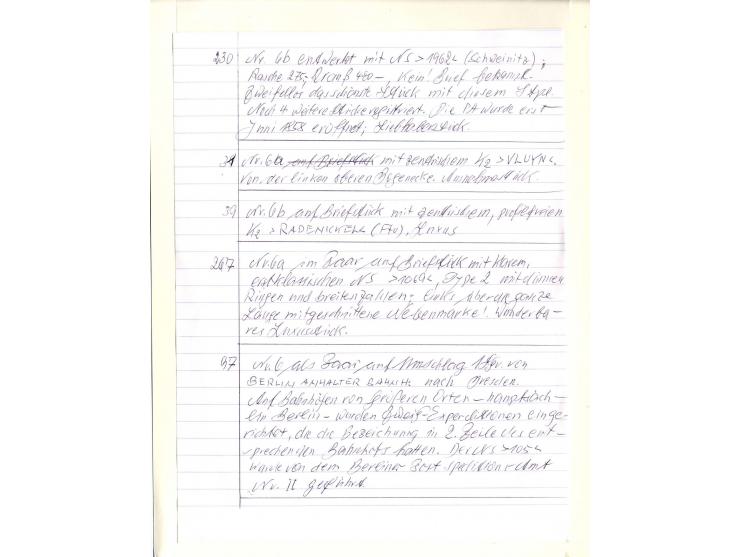 230 Nr. 6b entwertet mit NS >1962< (Schweinitz);
Rasche 275,- Krauß 480-, Kein! Brief bekannt.
Zweifellos das schönste Stück mit diesem Stpe
Noch 4 weitere Stücke registriert. Die PA wurde erst
Juni 1858 eröffnet; Liebhaberstück.
31 Nr. 6a auf Briefstück mit zentrischem K2 >VLUYN<
von der linken oberen Bogenecke. Ausnahmestück.
39 Nr. 6b auf Briefstück mit zentrischem,
K2 >RADENICKEL< (Ffo), Luxus
267 Nr. 6a im Paar auf Briefstück mit klarem,
NS >1069<, Type 2 mit dünnen
Ringen und breiten Zahlen; links, über die ganze
Länge mitgeschnittene Nebenmarke! Wunderba-
res Luxusstück.
97 Nr. 6 als Paar auf Umschlag von
BERLIN ANHALTER BAHNH. nach Dresden.
Auf Bahnhöfen von größeren Orten - hauptsäch-
lich Berlin - wurden Zweig-Expeditionen einge-
richtet, die die Bezeichnung in 2. Zeile des ent-
sprechenden Bahnhofs hatten. Der NS >105<
wurde von dem Berliner Post speditions-Amt
Nr. II geführt.